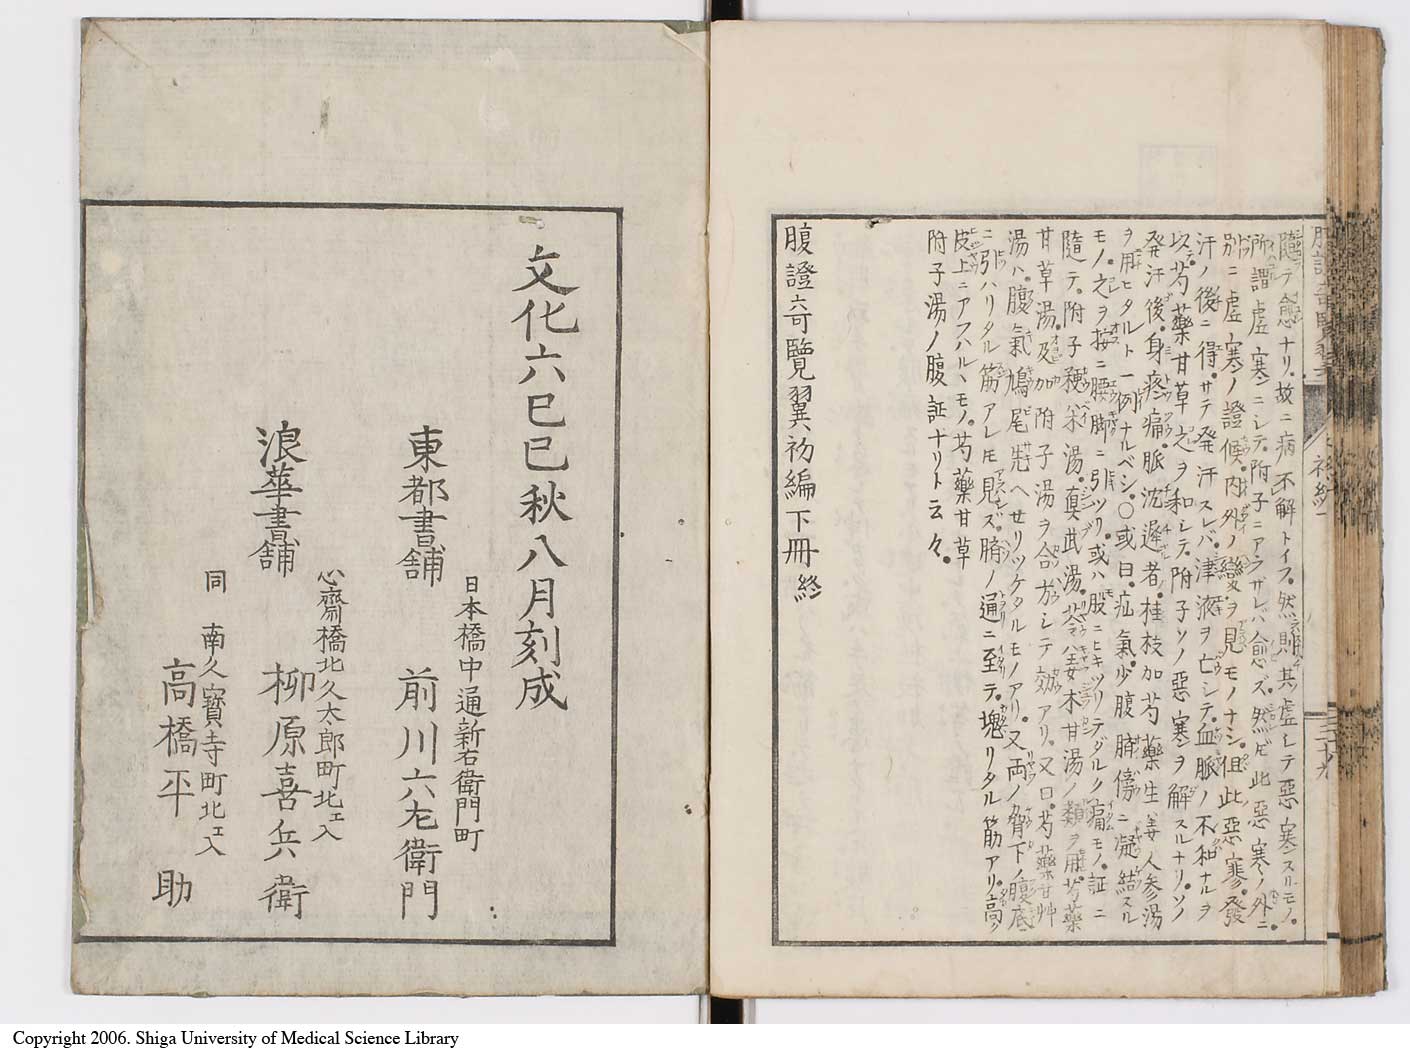 隨テ愈ナリ。故ニ病不解トイフ。然則其虚シテ惡寒スルモノ。
所謂虚寒ニシテ。附子ニアラザレバ愈ズ。然ドモ此惡寒ノ外ニ。
別ニ虚寒ノ證候。内外ノ變ヲ見モノナシ。但此惡寒。發
汗ノ後ニ得。サテ発汗スレバ。津液ヲ亡シテ。血脈ノ不和ナルヲ
以テ。芍藥甘草之ヲ和シテ。附子ソノ惡寒ヲ解スルナリ。ソノ
発汗後。身疼痛。脈沈遲者。桂枝加芍藥生姜人参湯
ヲ用ヒタルト一例ナルベシ。〇或曰。疝氣。少腹臍傍ニ凝結スル
モノ。之ヲ按ニ腰脚ニ引ツリ。或ハ股ニヒキツリテダルク痛モノ。証ニ
隨テ。附子粳米湯。真武湯。苓姜朮甘湯ノ類ヲ用。芍藥
甘草湯。及加附子湯ヲ合方シテ効アリ。又曰。芍藥甘艸
湯ハ。腹氣鳩尾先ヘせリツケタルモノアリ。又両ノ脅下ノ腹底
ニ引ハリタル筋アレドモ見ズ。臍ノ通ニ至テ。塊リタル筋アリ。高ク
皮上ニアラハルヽモノ。芍藥甘草
附子湯ノ腹証ナリト云々。
腹證奇覽翼初編下冊終
文化六己巳秋八月刻成
東都書舗
日本橋中通新右衛門町
前川六左衛門
浪華書舗
心齋橋北久太郎町北エ入
柳原喜兵衛
同 南久寶寺町北エ入
高橋平助
Copyright 2006. Shiga University of Medical Science Library